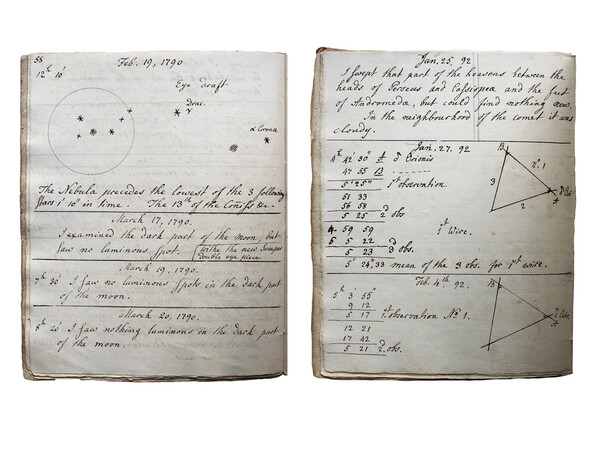 58
Feb. 19, 1790
12h 10'
Eye draft
Drac.
γ
α Coronæ
The Nebula precedes the lowest of the 3 following
stars 1' 10" in time. The 13th of the Conoiss &c.
March 17, 1790.
I examined the dark part of the moon, but
saw no luminous spot. with the new Sweeper
double eye piece
March 19, 1790.
7h 30' I saw no luminous spots in the dark part
of the moon.
March 20, 1790.
8h 20' I saw nothing luminous in the dark part
of the moon.
Jan. 25, 92
I swept that part of the heavens between the
heads of Perseus and Cassiopea and the feet
of Andromeda, but could find nothing new.
In the neighbourhood of the comet it was
cloudy.
Jan. 27. 92
4h 42' 30" δ Orionis
47 55 13
5' 25" 1st observation
51 33
56 58
5 25 2d obs
4 59 59 1st Wire.
5 5 22
5 23 3d
5' 24",33 mean of the 3 obs. for 1st wire.
B
no. 1
3
2
Feb. 4th 92.
5h 3' 55"
9 12
5 17 1st observation No 1.
12 21
17 42
5 21 2d obs.
B